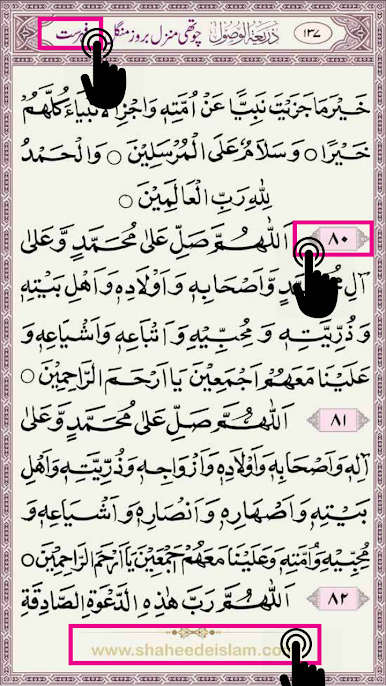 ۱۳۷ ذریعۃ الوصول چوتھی منزل بروز منگل فہرست
خَيْرَ مَا جَزَيْتَ نَبِيًّا عَنْ اُمَّتِهٖ وَاجْزِ الْاَنْبِيَاءَ كُلَّهُمْ
خَيْرًا ○ وَسَلَامٌ عَلَى الْمُرْسَلِيْنَ ○ وَالْحَمْدُ
لِلّٰهِ رَبِّ الْعَالَمِيْنَ ○
۸۰ اَللّٰهُمَّ صَلِّ عَلٰى مُحَمَّدٍ وَّعَلٰى
اٰلِ مُحَمَّدٍ وَّاَصْحَابِهٖ وَاَوْلَادِهٖ وَاَهْلِ بَيْتِهٖ
وَذُرِّيَّتِهٖ وَمُحِبِّيْهِ وَاَتْبَاعِهٖ وَاَشْيَاعِهٖ وَ
عَلَيْنَا مَعَهُمْ اَجْمَعِيْنَ يَا اَرْحَمَ الرَّاحِمِيْنَ ○
۸۱ اَللّٰهُمَّ صَلِّ عَلٰى مُحَمَّدٍ وَّعَلٰى
اٰلِهٖ وَاَصْحَابِهٖ وَاَوْلَادِهٖ وَاَزْوَاجِهٖ وَذُرِّيَّتِهٖ وَاَهْلِ
بَيْتِهٖ وَاَصْهَارِهٖ وَاَنْصَارِهٖ وَاَشْيَاعِهٖ وَ
مُحِبِّيْهِ وَاُمَّتِهٖ وَعَلَيْنَا مَعَهُمْ اَجْمَعِيْنَ يَا اَرْحَمَ الرَّاحِمِيْنَ ○
۸۲ اَللّٰهُمَّ رَبَّ هٰذِهِ الدَّعْوَةِ الصَّادِقَةِ
www.shaheedeislam.co